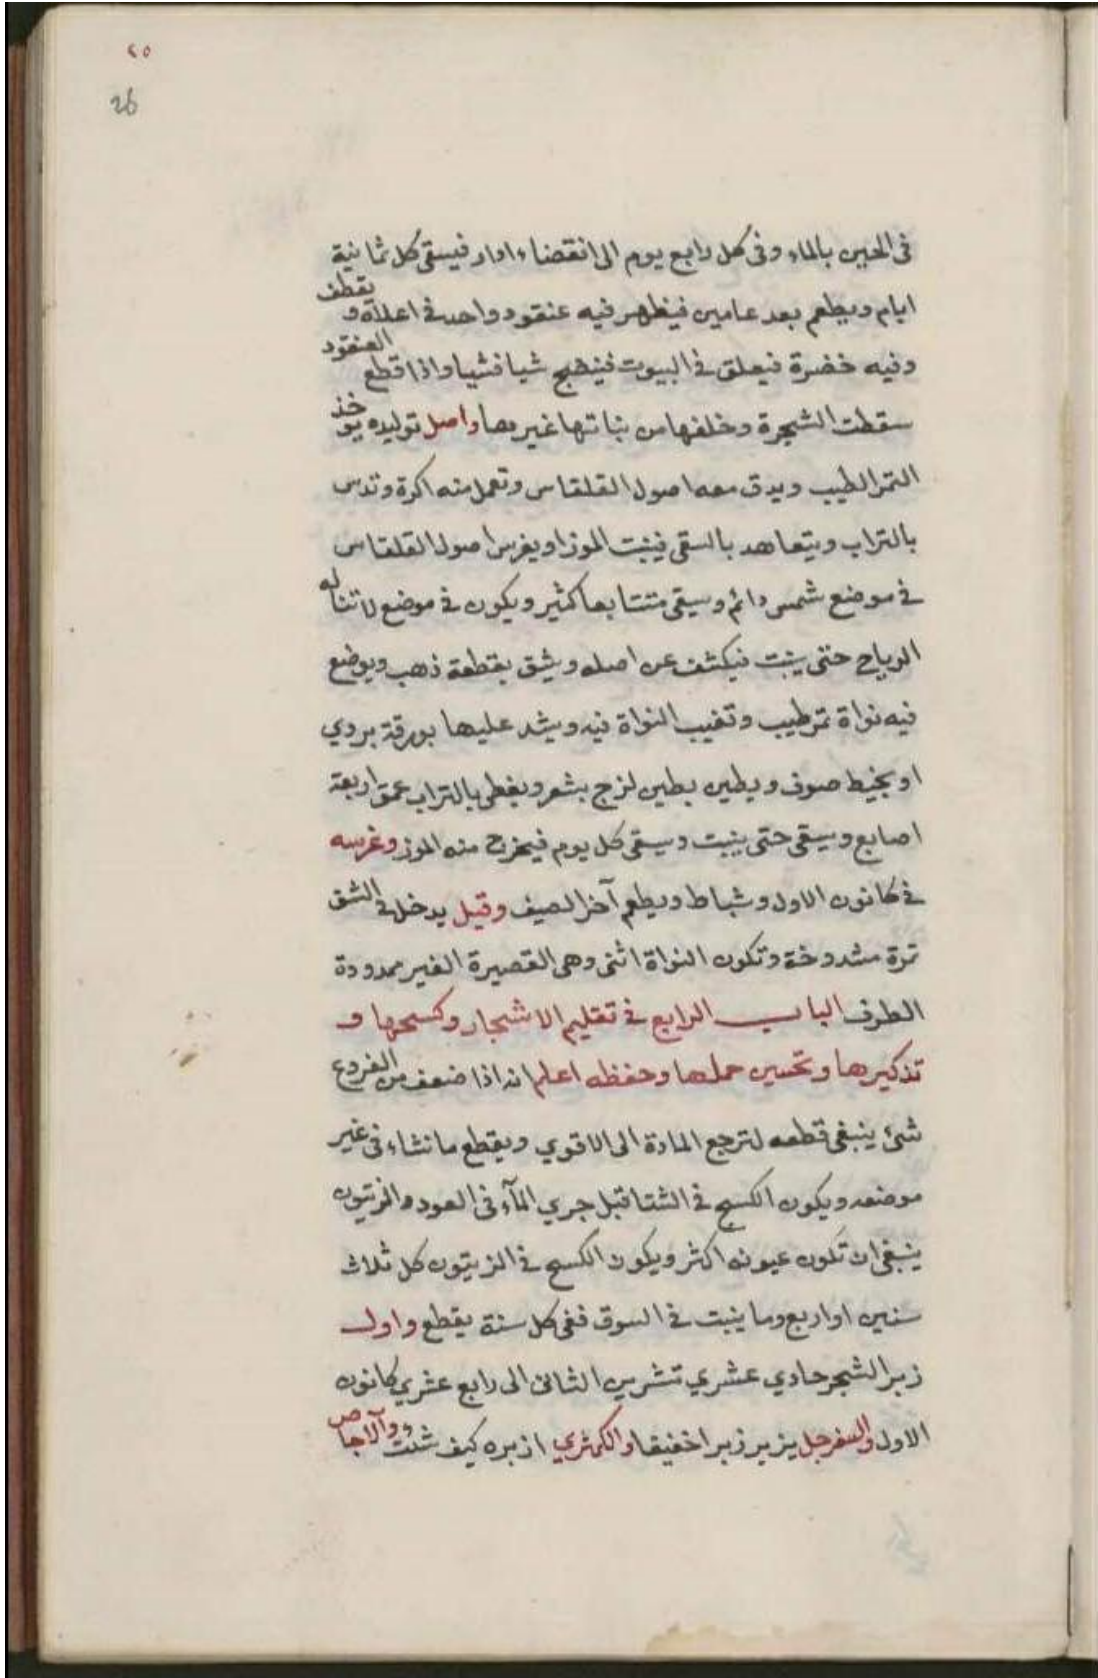 ٢٥
26
فى الحين بالماء وفى كل رابع يوم الى انقضاء اذار فيسقى كل ثمانية
ايام ويطعم بعد عامين فيظهر فيه عنقود واحد فى اعلاه و يقطف
وفيه خضرة فيعلق فى البيوت فينضج شيا فشيا واذا قطع العنقود
سقطت الشجرة وخلفها من بناتها غيرها واصل توليده يوخذ
التمر الطيب ويدق معه اصول القلقاس وتعمل منه اكرة وتدس
بالتراب ويتعاهد بالسقى فينبت الموز او يغرس اصول القلقاس
فى موضع شمس دائم وسيقى متتابعا كثير ويكون فى موضع لا تناله
الرياح حتى ينبت فيكشف عن اصله ويشق بقطعة ذهب ويوضع
فيه نواة تمر طيب وتغيب النواة فيه ويشد عليها بورقة بردي
او بخيط صوف ويطين بطين لزج بشعر ويغطى بالتراب عمق اربعة
اصابع وسيقى حتى ينبت وسيقى كل يوم فيخرج منه الموز وغرسه
فى كانون الاول وشباط ويطعم آخر الصيف وقيل يدخل فى الشق
تمرة مشدوخة وتكون النواة انثى وهى القصيرة الغير ممدودة
الطرف الباب الرابع فى تقليم الاشجار وكسحها و
تذكيرها وتحسين حملها وحفظه اعلم انه اذا ضعف من الفروع
شئ ينبغى قطعه لترجع المادة الى الاقوي ويقطع ما نشاء فى غير
موضعه ويكون الكسح فى الشتا قبل جري المآء فى العود والزيتون
ينبغى ان تكون عيونه اكثر ويكون الكسح فى الزيتون كل ثلاث
سنين او اربع وما ينبت فى السوق ففى كل سنة يقطع واول
زبر الشجر حادي عشري تشرين الثانى الى رابع عشري كانون
الاول والسفرجل يزبر زبرا خفيفا والكمثري ازبره كيف شئت والآجاص